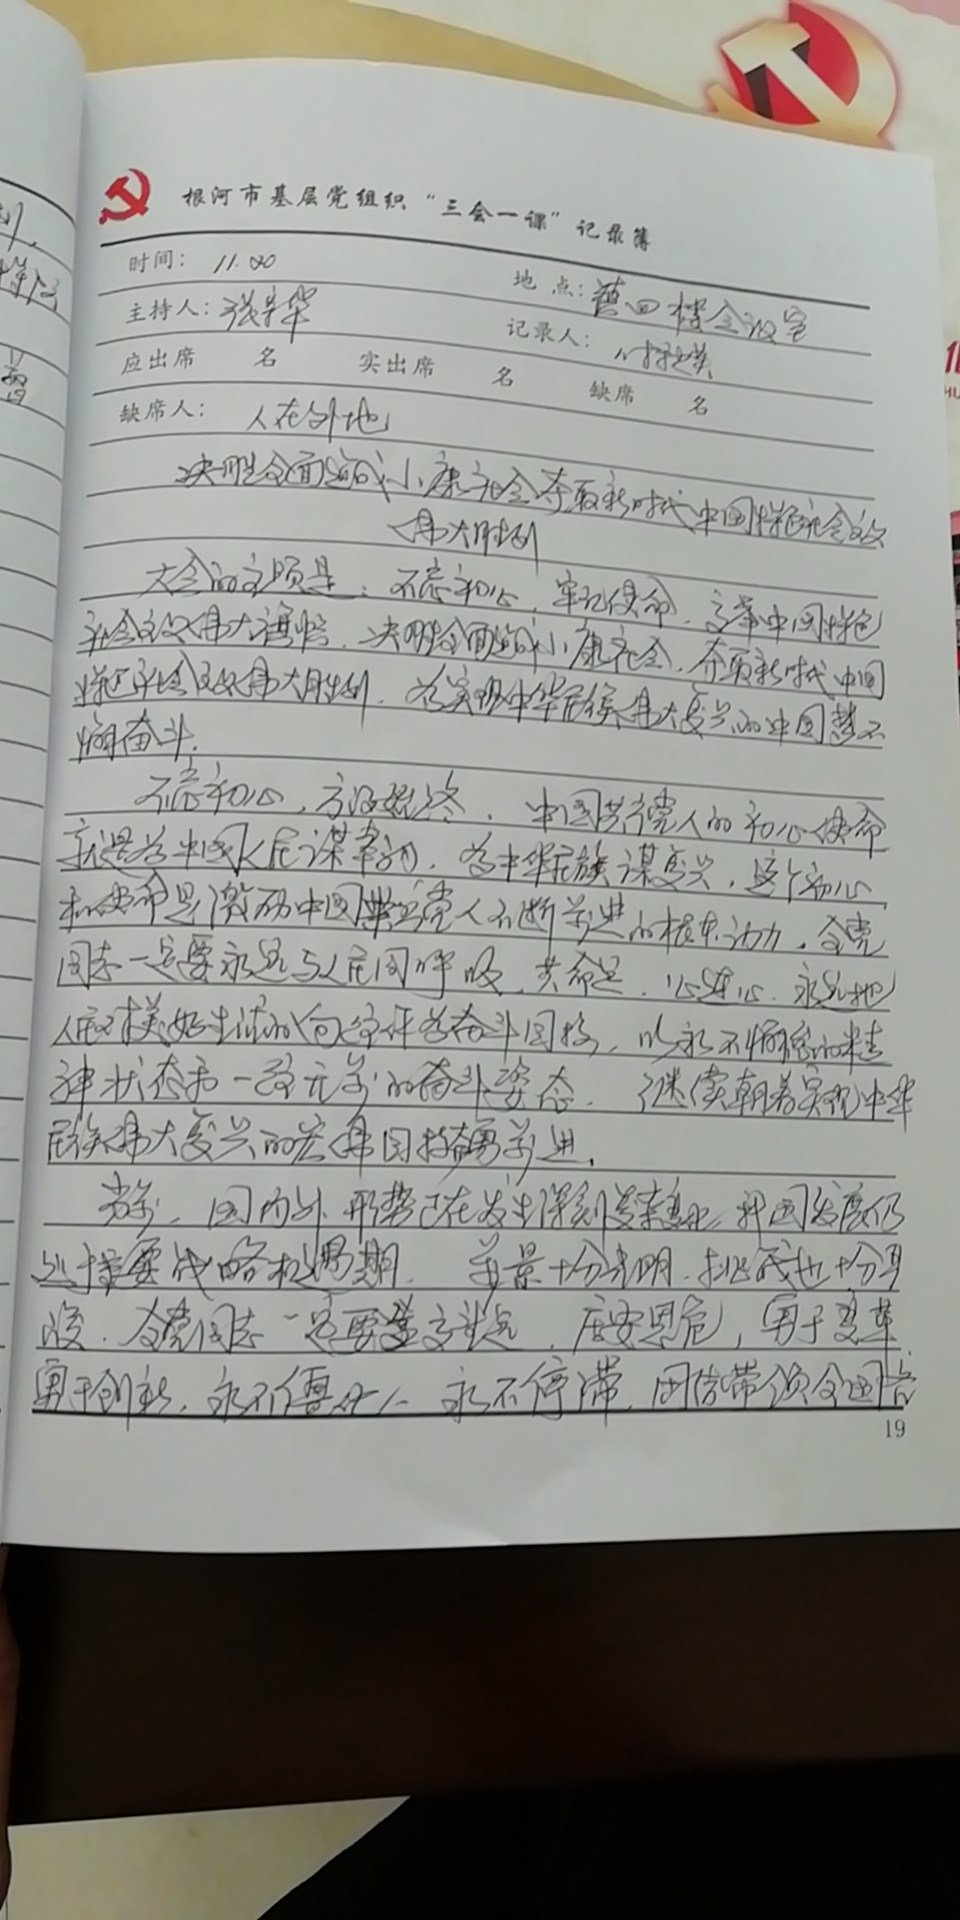 根河市基层党组织“三会一课”记录簿
时间：11.20 地点：四楼会议室
主持人：张 华 记录人：
应出席 名 实出席 名 缺席 名
缺席人：人在外地
决胜全面建成小康社会夺取新时代中国特色社会主义
伟大胜利
大会的主题是：不忘初心，牢记使命，高举中国特色
社会主义伟大旗帜，决胜全面建成小康社会，夺取新时代中国
特色社会主义伟大胜利，为实现中华民族伟大复兴的中国梦不
懈奋斗.
不忘初心，方得始终，中国共产党人的初心使命
就是为中国人民谋幸福，为中华民族谋复兴，这个初心
和使命是激励中国共产党人不断前进的根本动力，全党
同志一定要永远与人民同呼吸，共命运，心连心，永远把
人民对美好生活的向往作为奋斗目标，以永不懈怠的精
神状态和一往无前的奋斗姿态，继续朝着实现中华
民族伟大复兴的宏伟目标奋勇前进.
当前，国内外形势正在发生深刻复杂变化，我国发展仍
处于重要战略机遇期，前景十分光明，挑战也十分严
峻. 全党同志一定要登高望远，居安思危，勇于变革，
勇于创新，永不僵化，永不停滞，团结带领全国各
19